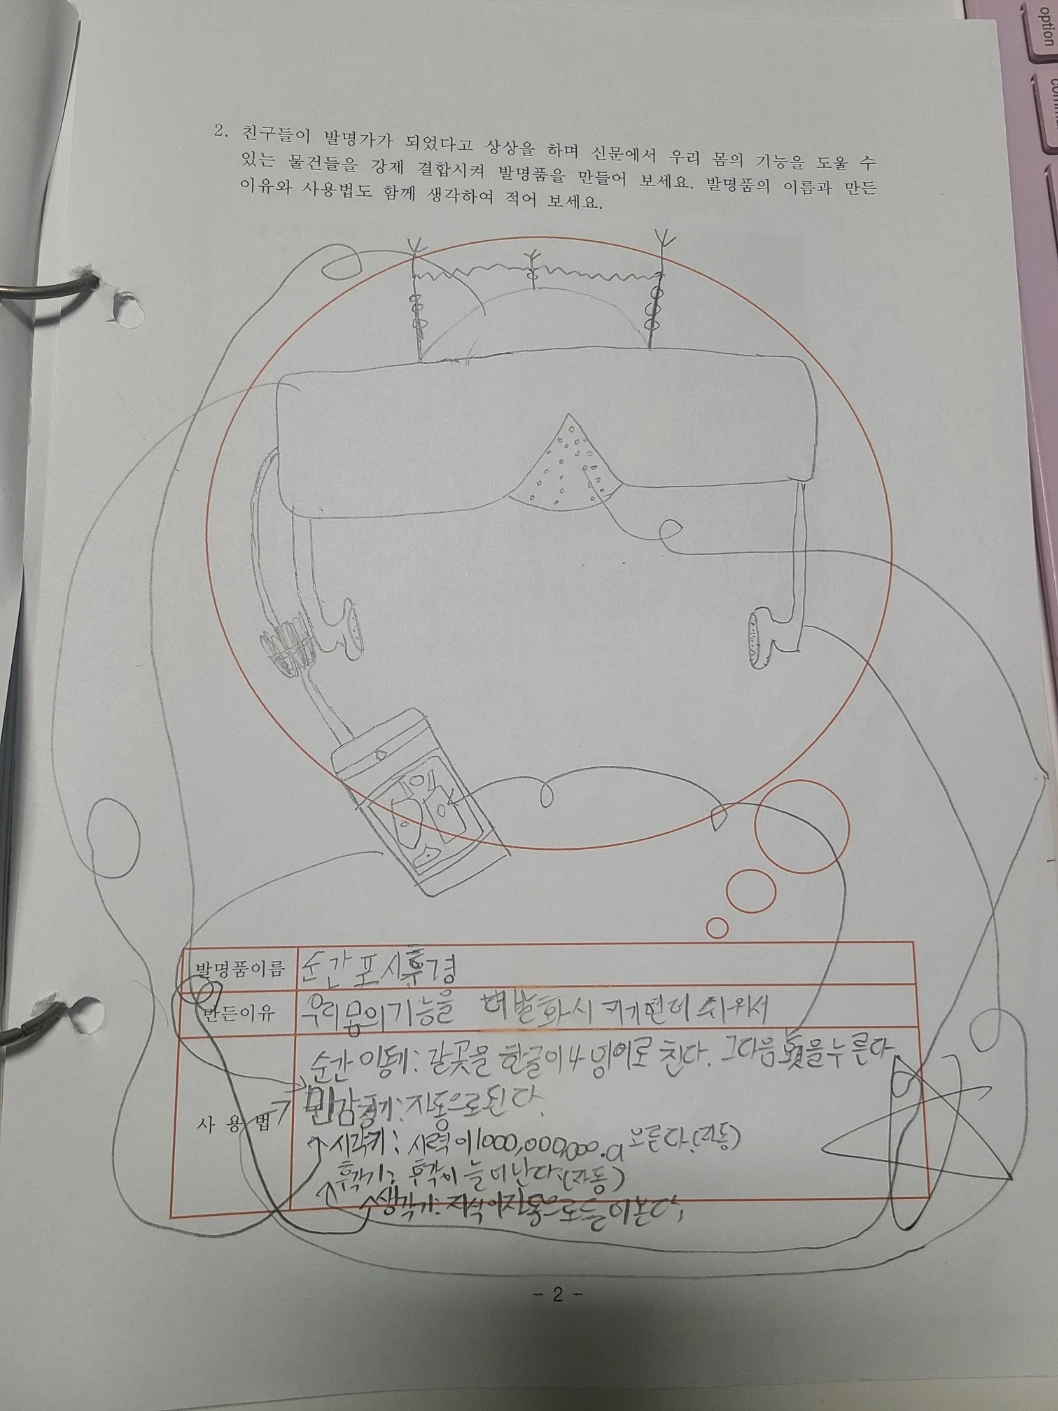 option
2. 친구들이 발명가가 되었다고 상상을 하며 신문에서 우리 몸의 기능을 도울 수
있는 물건들을 강제 결합시켜 발명품을 만들어 보세요. 발명품의 이름과 만든
이유와 사용법도 함께 생각하여 적어 보세요.
발명품이름 순간 포시후경
만든이유 우리몸의기능을 더발화시키기먼데 쉬워서
사용법
순간이동기: 갈곳을 한글이나 영어로 친다. 그다음 을누른다.
민감기: 자동으로된다.
시각키: 시력이1000,000,000.0 오른다.(자동)
후각기: 후각이 늘어난다.(자동)
생각기: 지식이자동으로들어온다.
- 2 -